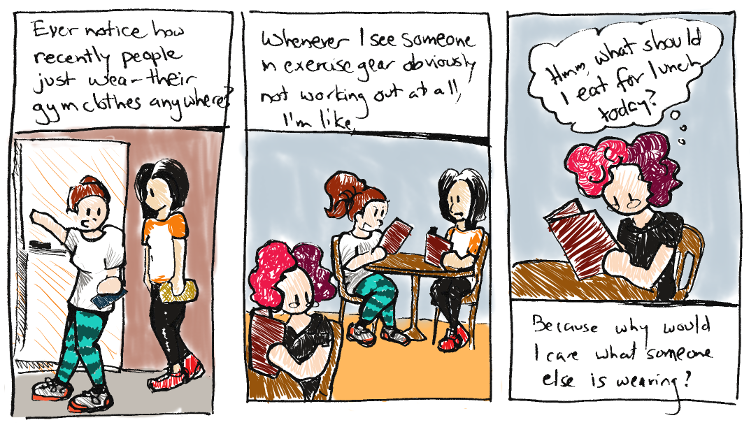 Ever notice how
recently people
just wear their
gym clothes anywhere?
Whenever I see someone
in exercise gear obviously
not working out at all,
I'm like,
Hmm, what should
I eat for lunch
today?
Because why would
I care what someone
else is wearing?